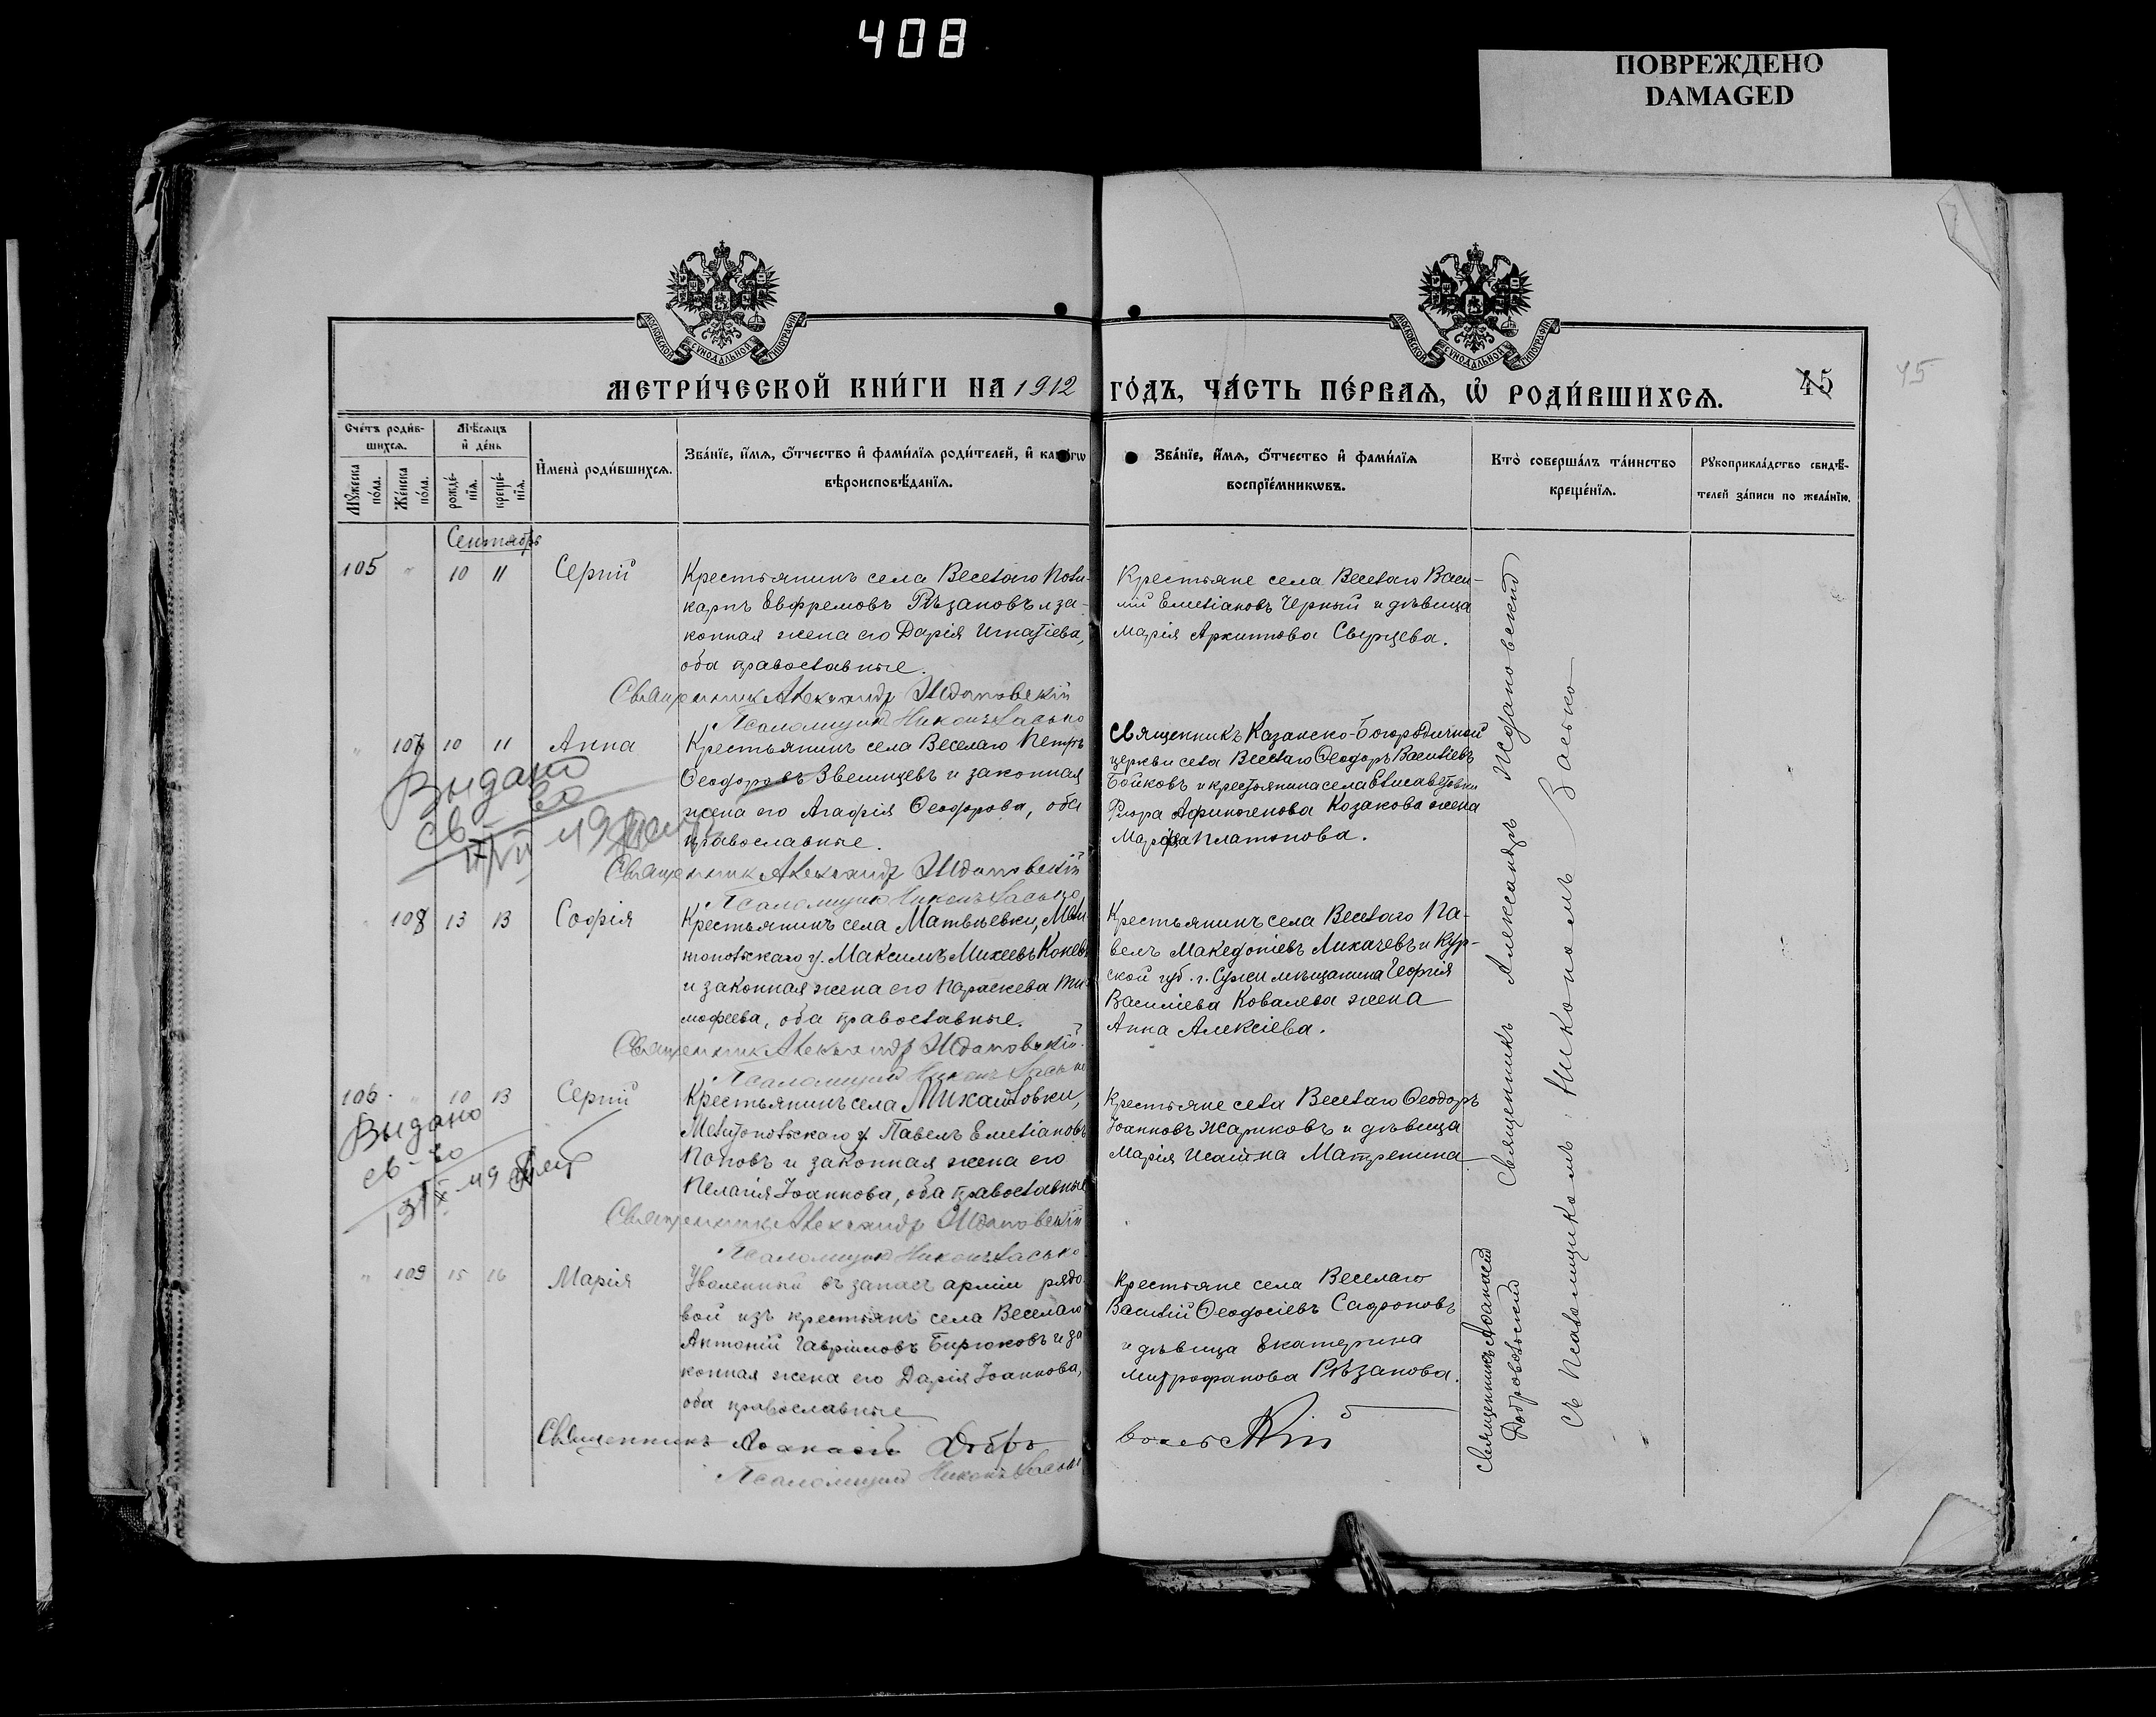 408
ПОВРЕЖДЕНО
DAMAGED
МОСКОВСКОЙ СѴНОДАЛЬНОЙ ТИПОГРАФІИ
МОСКОВСКОЙ СѴНОДАЛЬНОЙ ТИПОГРАФІИ
МЕТРИ́ЧЕСКОЙ КНИ́ГИ НА 1912 ГО́ДЪ, ЧА́СТЬ ПЕ́РВАѦ, Ѿ РОДИ́ВШИХСѦ.
45
45
Сче́тъ роди́в-
шихсѧ.
Мꙋ́жеска по́ла.
Же́нска по́ла.
Мѣ́сѧцъ
и҆ де́нь
рожде́-
нїѧ.
креще́-
нїѧ.
И҆мена̀ роди́вшихсѧ.
Зва́нїе, и҆́мѧ, ѻ҆́тчество и҆ фами́лїѧ роди́телей, и҆ како́гѡ
вѣроисповѣ́данїѧ.
Зва́нїе, и҆́мѧ, ѻ҆́тчество и҆ фами́лїѧ
воспрїе́мникѡвъ.
Кто̀ соверша́лъ та́инство
креще́нїѧ.
Рꙋкоприкла́дство свидѣ́-
телей за́писи по жела́нїю.
Сентябрь
105 " 10 11 Сергій
Крестьянинъ села Веселаго Поли-
карпъ Евфремовъ Рѣзановъ и за-
конная жена его Дарія Игнатіева,
оба православные.
Священник Александр Ждановскій
Псаломщик Никонъ Васько
Крестьяне села Веселаго Васи-
лій Емеліановъ Черный и дѣвица
Марія Архиппова Свирцева.
" 107 10 11 Анна
Крестьянинъ села Веселаго Петръ
Ѳеодоровъ Звегинцевъ и законная
жена его Агафія Ѳеодорова, оба
православные.
Священник Александр Ждановскій
Псаломщик Никонъ Васько
Выдано
св-во
Священникъ Казанско-Богородичной
церкви села Веселаго Ѳеодоръ Василіевъ
Бойковъ и крестьянина села Елисаветовки
Флора Афиногенова Козакова жена
Марѳа Платонова.
" 108 13 13 Софія
Крестьянинъ села Матвѣевки, Мели-
топольскаго у. Максимъ Михеевъ Коневъ
и законная жена его Параскева Ти-
мофеева, оба православные.
Священник Александр Ждановскій
Псаломщик Никонъ Васько
Крестьянинъ села Веселаго Па-
велъ Македоніевъ Лихачевъ и Кур-
ской губ. г. Суджи мѣщанина Георгія
Василіева Ковалева жена
Анна Алексіева.
106 " 10 13 Сергій
Крестьянинъ села Михайловки,
Мелитопольскаго у. Павелъ Емеліановъ
Поповъ и законная жена его
Пелагія Іоаннова, оба православные
Священник Александр Ждановскій
Псаломщик Никонъ Васько
Выдано
св-во
Крестьяне села Веселаго Ѳеодоръ
Іоанновъ Жариковъ и дѣвица
Марія Исаіина Матренина
" 109 15 16 Марія
Уволенный въ запасъ арміи рядо-
вой изъ крестьянъ села Веселаго
Антоній Гавріиловъ Бирюковъ и за
конная жена его Дарія Іоаннова,
оба православные
Священникъ Аѳанасій Добровольскій
Псаломщик Никонъ Васько
Крестьяне села Веселаго
Василій Ѳеодосіевъ Сафоновъ
и дѣвица Екатерина
Митрофанова Рѣзанова.
Священникъ Александръ Ждановскій
Священникъ Аѳанасій
Добровольскій
съ Псаломщикомъ Никономъ Васько